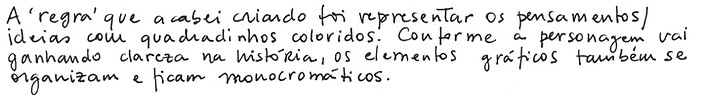 A 'regra' que acabei criando foi representar os pensamentos/
ideias com quadradinhos coloridos. Conforme a personagem vai
ganhando clareza na história, os elementos gráficos também se
organizam e ficam monocromáticos.